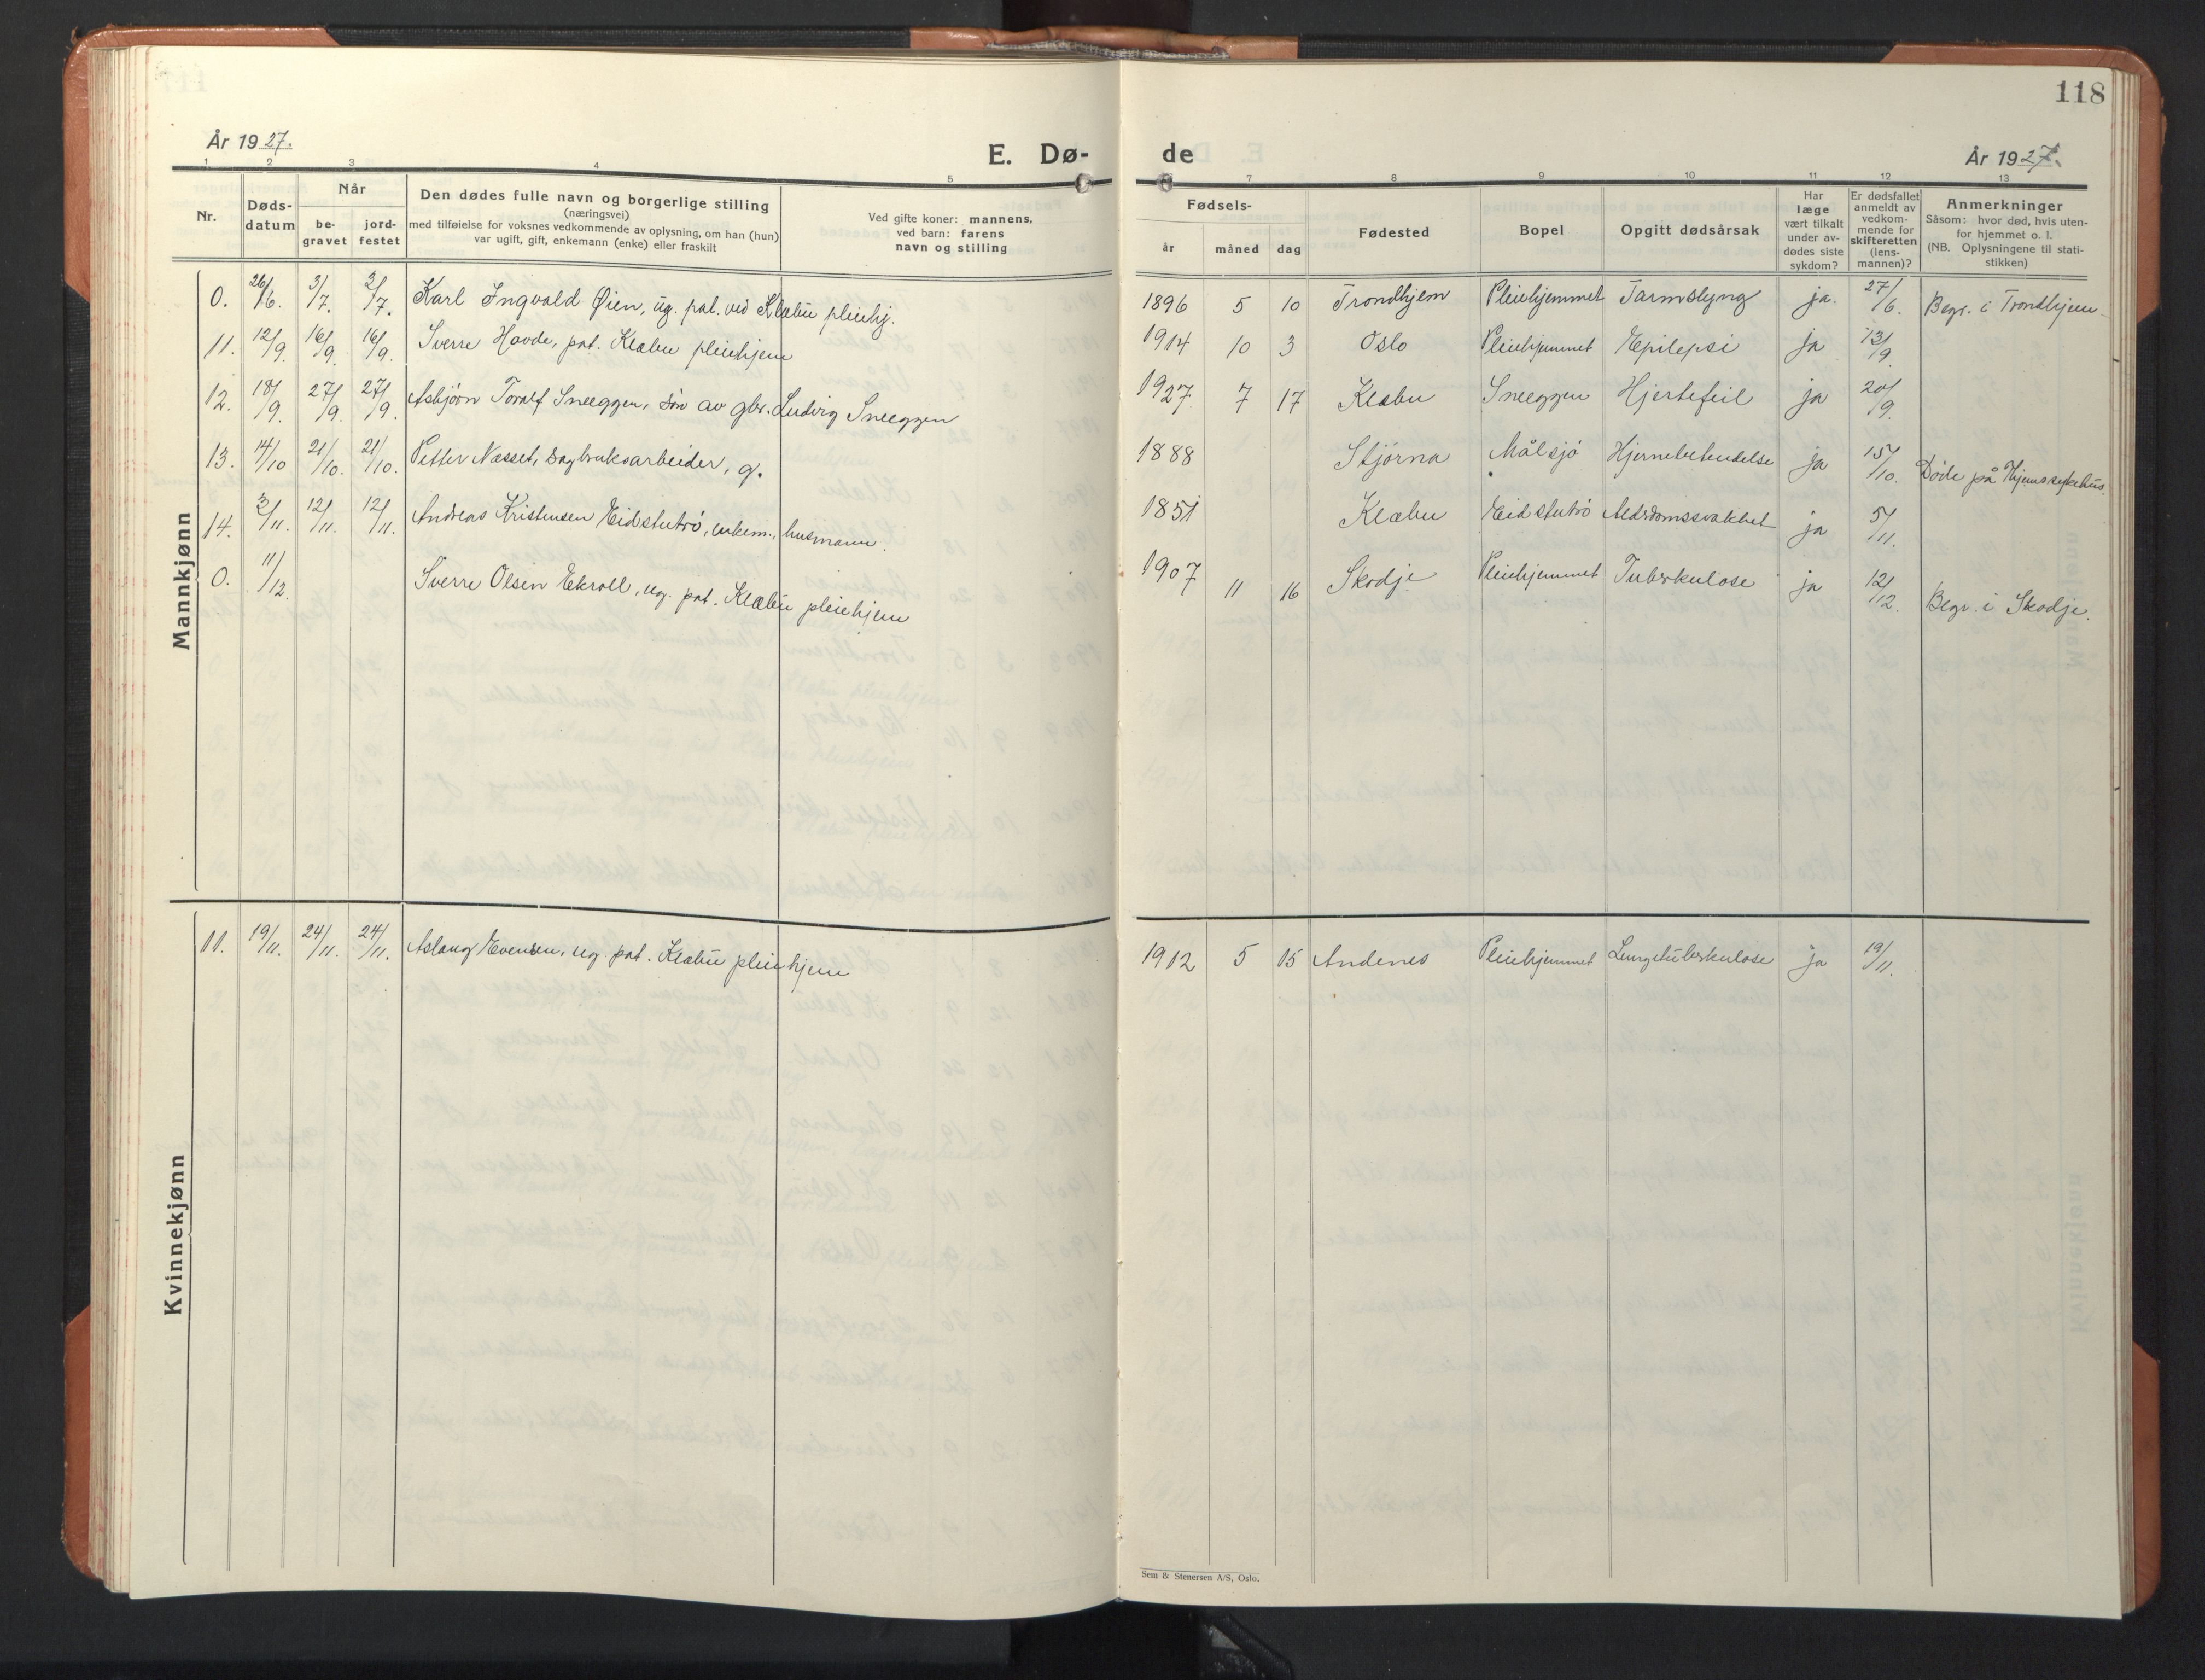 118
År 1927.
E. Dø-
de
År 1927.
1 2 3 4 5
7 8 9 10 11 12 13
Nr.
Døds-
datum
Når
be-
gravet
jord-
festet
Den dødes fulle navn og borgerlige stilling
(næringsvei)
med tilføielse for voksnes vedkommende av oplysning, om han (hun)
var ugift, gift, enkemann (enke) eller fraskilt
Ved gifte koner: mannens,
ved barn: farens
navn og stilling
Fødsels-
år
måned
dag
Fødested
Bopel
Opgitt dødsårsak
Har
læge
vært tilkalt
under av-
dødes siste
sykdom?
Er dødsfallet
anmeldt av
vedkom-
mende for
skifteretten
(lens-
mannen)?
Anmerkninger
Såsom: hvor død, hvis uten-
for hjemmet o. l.
(NB. Oplysningene til stati-
stikken)
Mannkjønn
0. 26/6. 3/7. 3/7. Karl Ingvald Øien, ug. pat. ved Klæbu pleiehj. 1896 5 10 Trondhjem Pleiehjemmet Tarmslyng ja. 27/6. Begr. i Trondhjem
11. 12/9. 16/9. 16/9. Sverre Hovde, pat. Klæbu pleiehjem 1914 10 3 Oslo Pleiehjemmet Epilepsi ja 13/9.
12. 18/9. 27/9. 27/9. Asbjørn Toralf Sneeggen, søn av gbr. Ludvig Sneeggen 1927 7 17 Klæbu Sneeggen Hjertefeil ja 20/9.
13. 14/10 21/10. 21/10. Petter Næsset, sagbruksarbeider, g. 1888 Stjørna Målsjø Hjernebetendelse ja 15/10. Døde på Tr.hjems sykehus.
14. 3/11. 12/11. 12/11. Andreas Kristensen Eidstutrø, enkem., husmann. 1851 Klæbu Eidstutrø Alderdomssvakhet ja 5/11.
0. 11/12. Sverre Olsen Ekroll, ug. pat. Klæbu pleiehjem 1907 11 16 Skodje Pleiehjemmet Tuberkulose ja 12/12. Begr. i Skodje.
Kvinnekjønn
11. 19/11. 24/11. 24/11. Aslaug Evensen, ug. pat. Klæbu pleiehjem 1912 5 15 Andenes Pleiehjemmet Lungetuberkulose ja 19/11.
Sem & Stenersen A/S, Oslo.